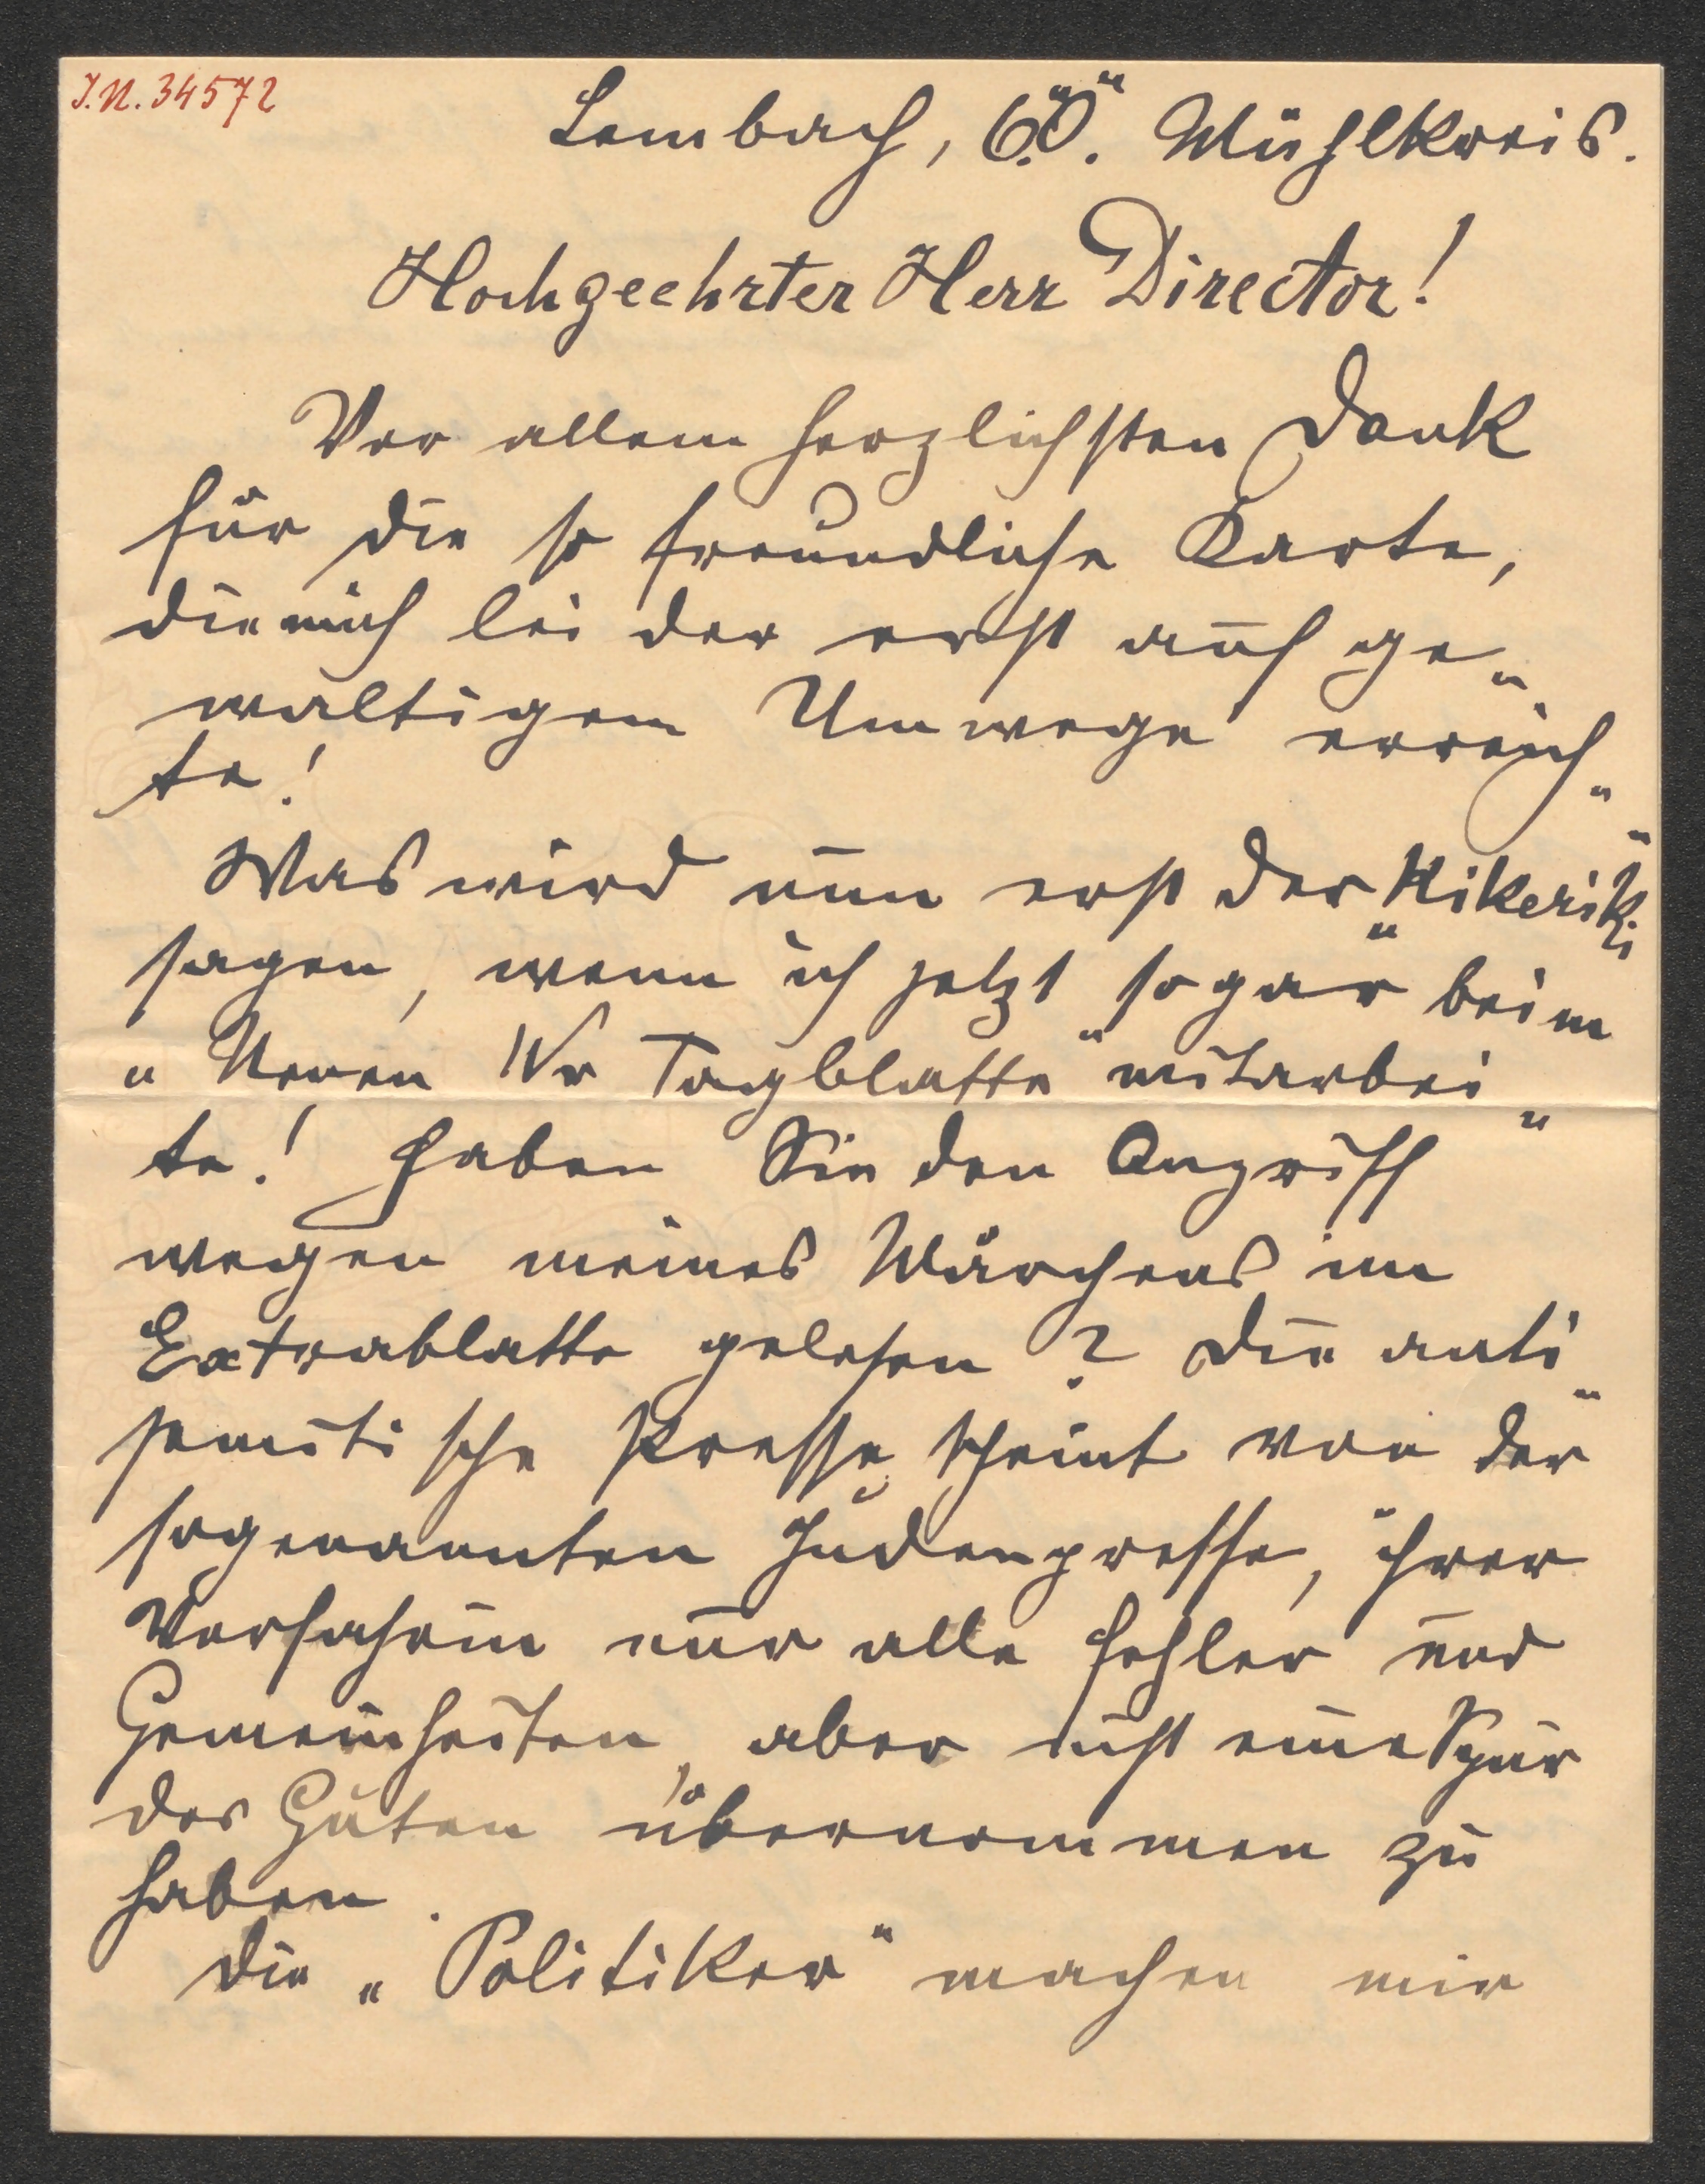 J.N. 34572
Lembach, O.Ö. Mühlkreis.
Hochgeehrter Herr Director!
Vor allem herzlichsten Dank
für die so freundliche Karte,
die mich leider erst auf ge-
waltigem Umwege erreich-
te!
Was wird nun erst der „Kikeriki"
sagen, wenn ich jetzt sogar beim
„Neuen Wr Tagblatte" mitarbei-
te! Haben Sie den Angriff
wegen meines Märchens im
Extrablatte gelesen? Die anti-
semitische Presse scheint von der
sogenannten Judenpresse, ihrer
Vorfahrin nur alle Fehler und
Gemeinheiten, aber nicht eine Spur
des Guten übernommen zu
haben.
Die „Politiker" machen mir